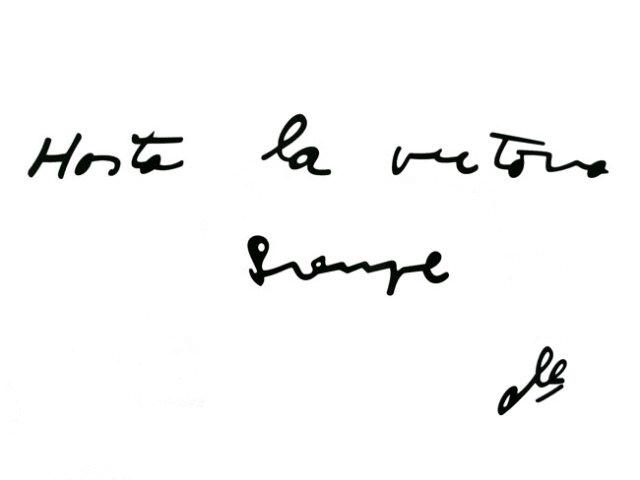 Hasta la victoria
siempre
che